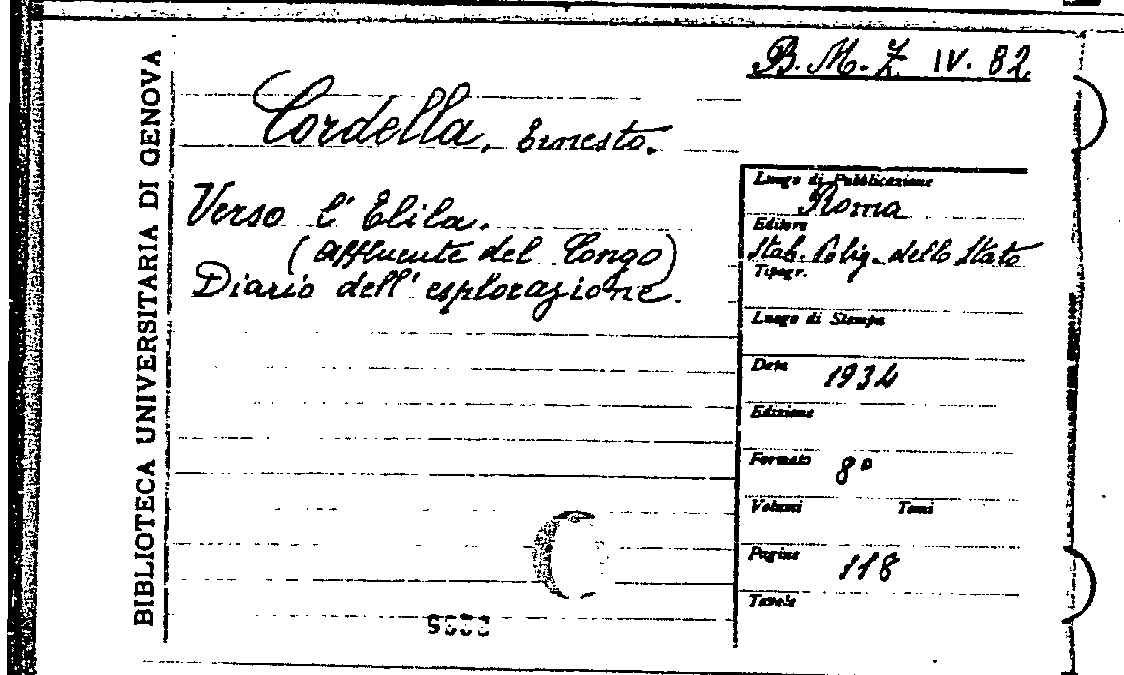 BIBLIOTECA UNIVERSITARIA DI GENOVA
B. M. Z. IV. 82
Cordella, Ernesto.
Verso l'Elila.
(affluente del Congo)
Diario dell'esplorazione.
Luogo di Pubblicazione
Roma
Editore
Stab. Polig. dello Stato
Tipogr.
Luogo di Stampa
Data 1934
Edizione
Formato 8°
Volumi Tomi
Pagine 118
Tavole